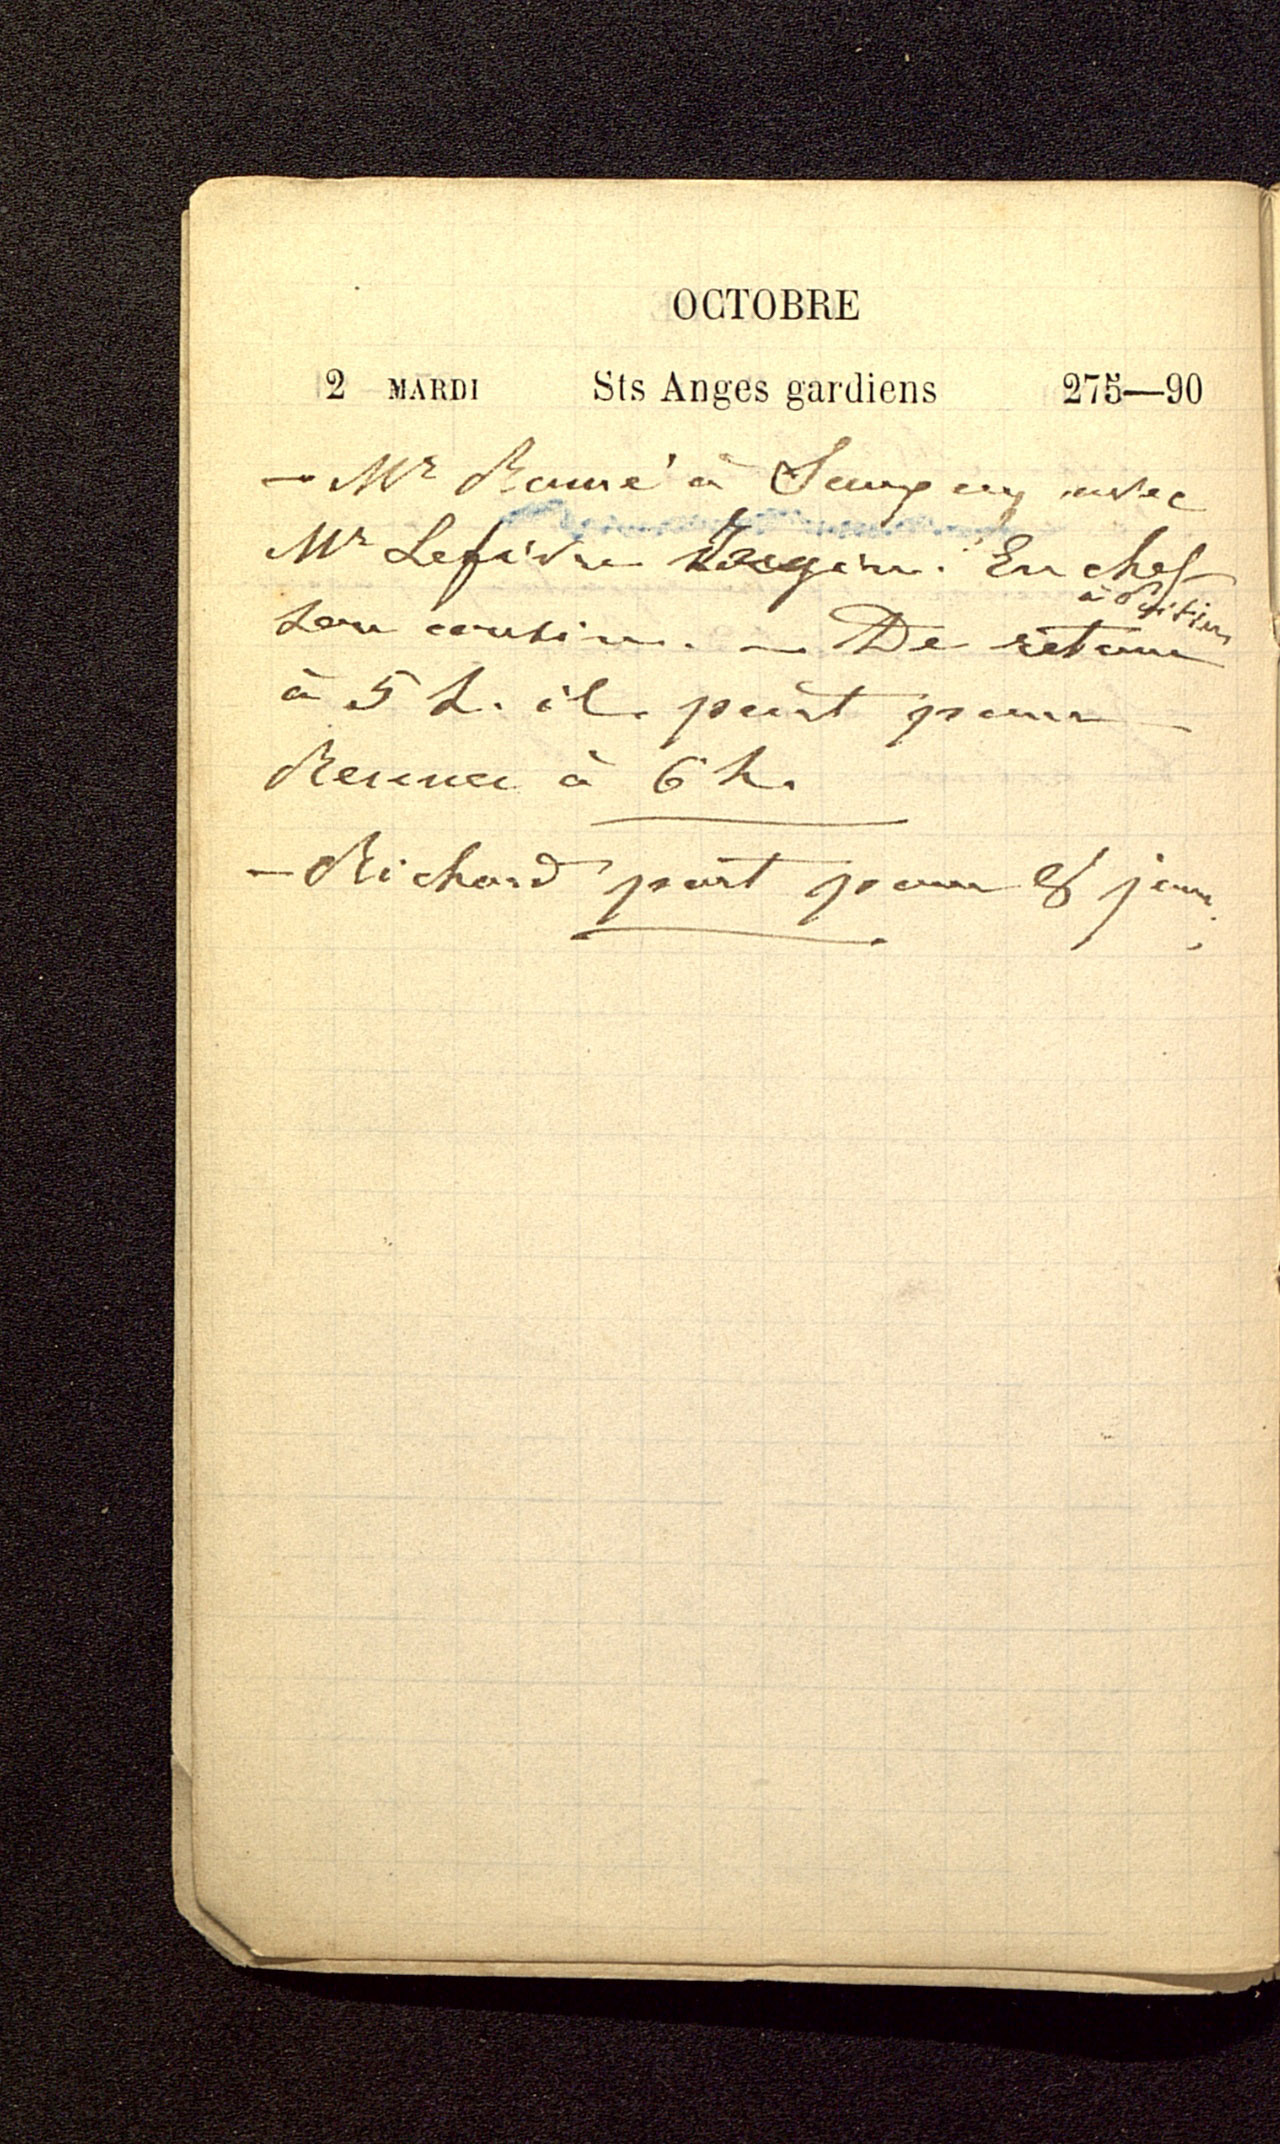 OCTOBRE
2 MARDI Sts Anges gardiens 275—90
— Mr Ramé à avec
Mr Lefèvre Ingén. En chef
à Poitiers
son cousin. — De retour
à 5 h. il part pour
Rennes à 6 h.
— Richard part pour 8 jours.